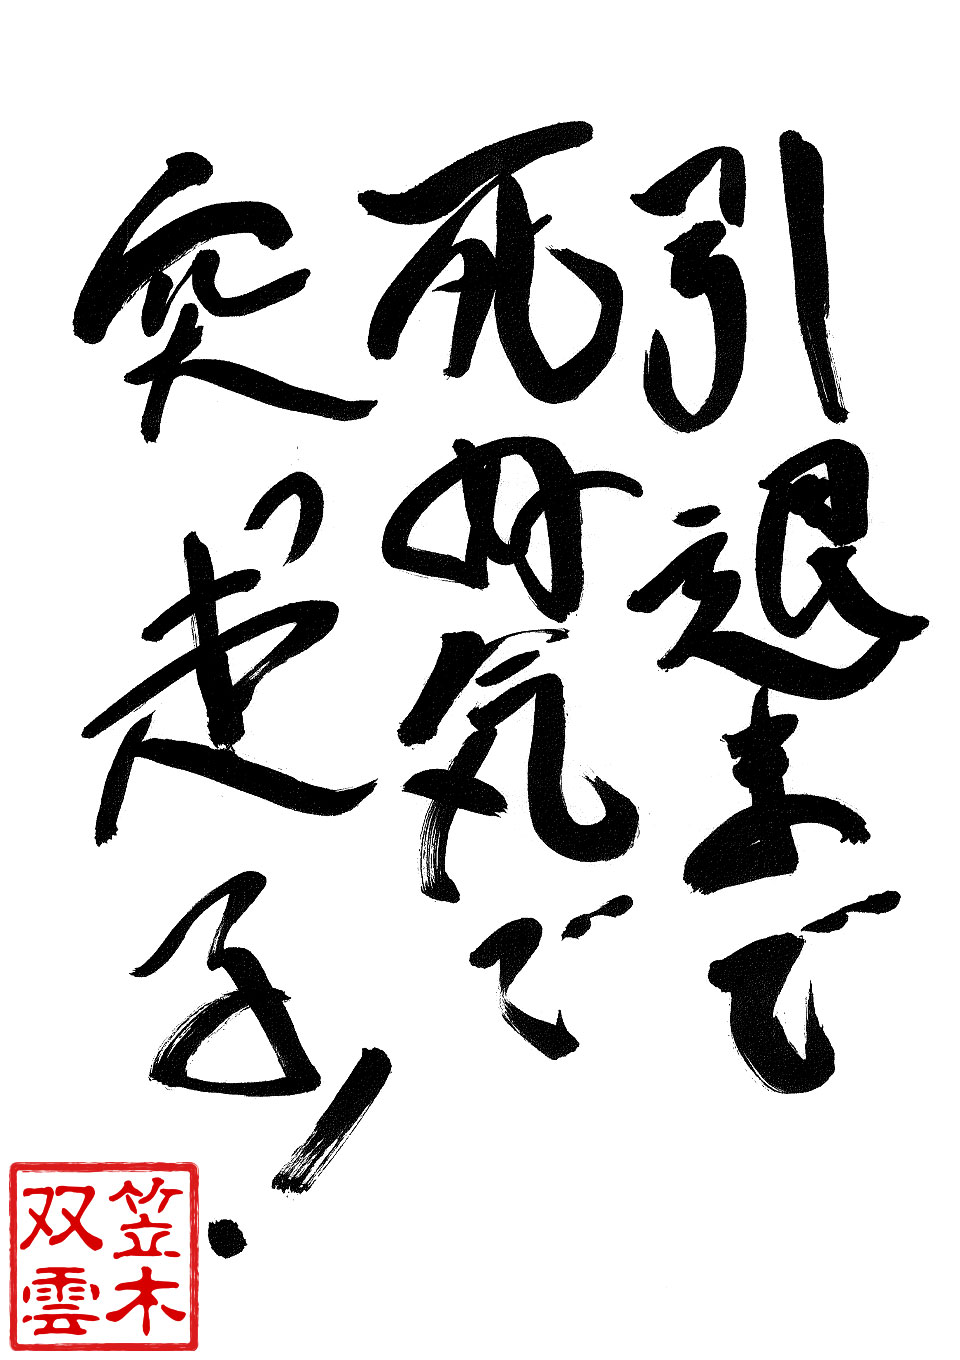 引退まで
死ぬ気で
突っ走る!
笠木
双雲